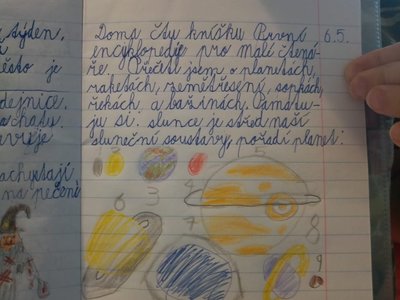 týden,
a
ěsto je
dejnice.
achatu.
avřeje
achutají
na pečení
Doma čtu knížku První 6.5.
encyklopedie pro malé čtená-
ře. Přečetl jsem o planetách,
raketách, zemětřesení, sopkách,
řekách a bažinách. Pamatu-
ju si: slunce je střed naší
sluneční soustavy, pořadí planet:
1 2 3 4 5
6 7 8
9